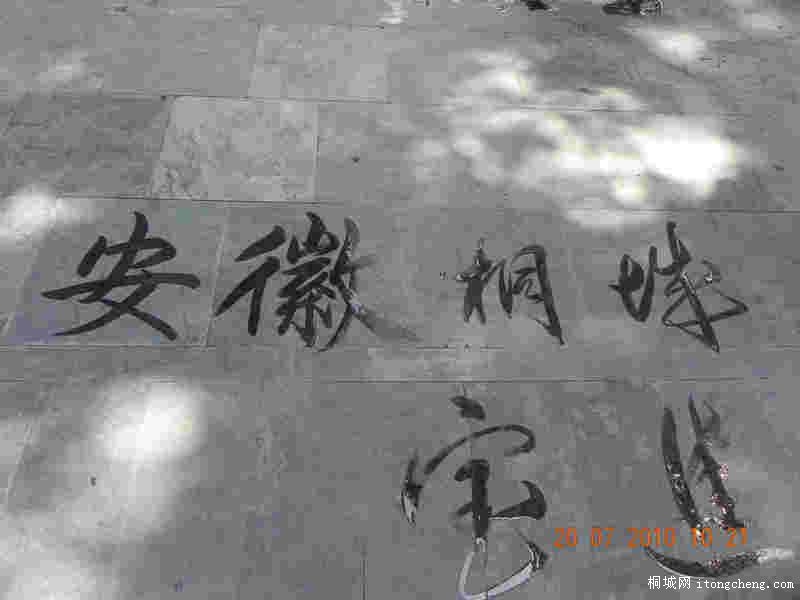 安徽桐城
20 07 2010 10:21
桐城网 itongcheng.com